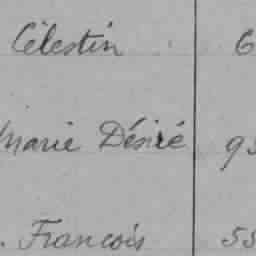 Célestin 6
Marie Désiré 93
. François 55